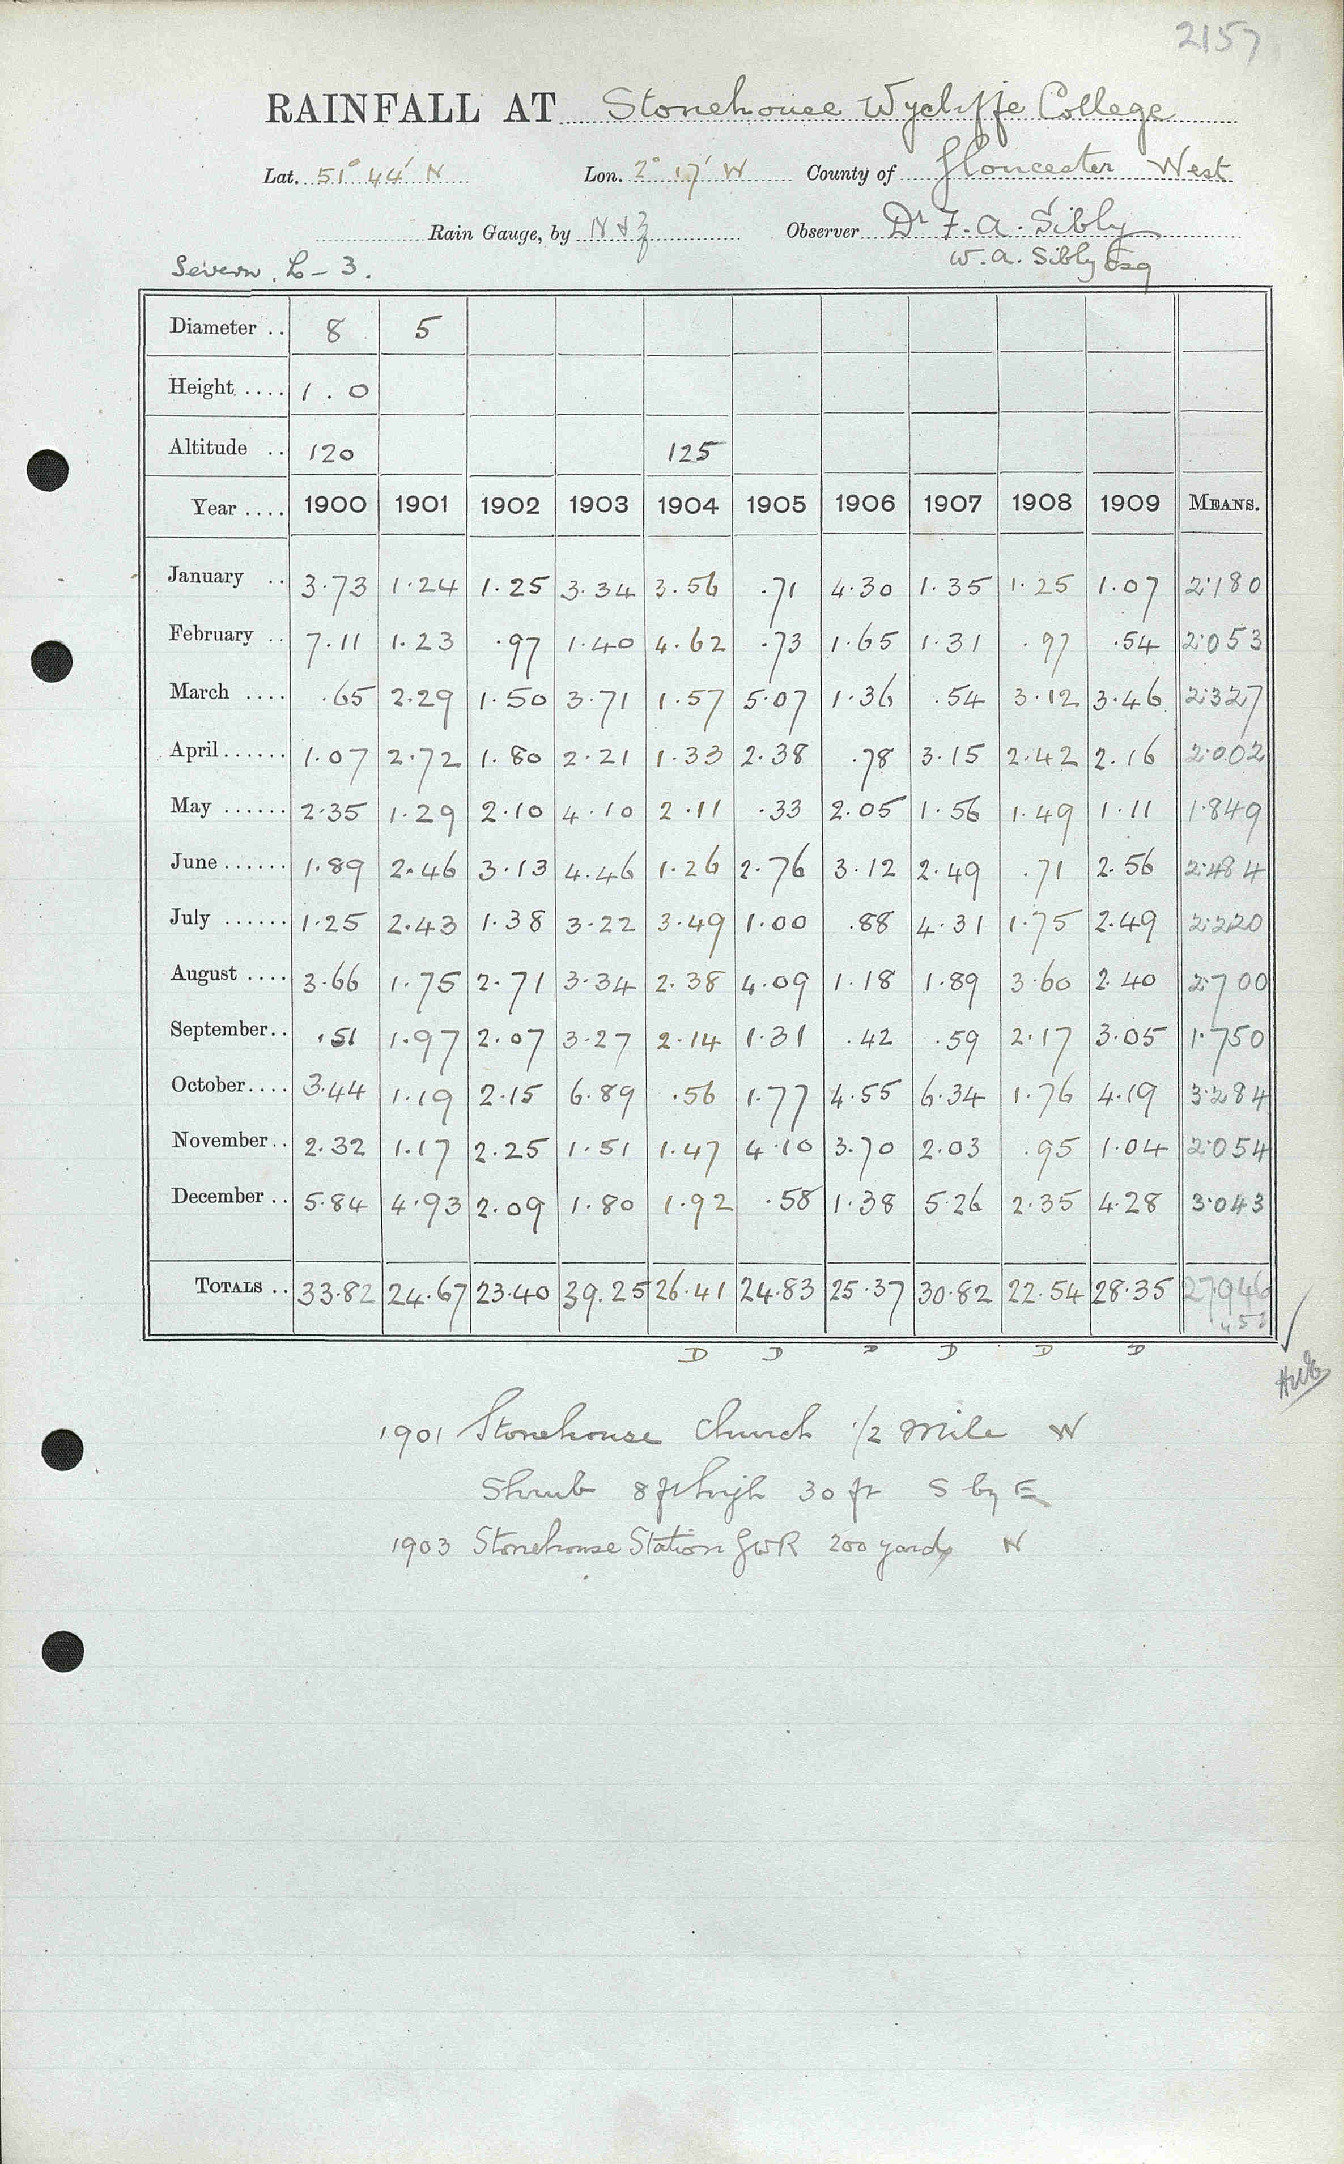 2157
RAINFALL AT Stonehouse Wycliffe College
Lat. 51° 44' N Lon. 2° 17' W County of Gloucester West
Rain Gauge, by N & Z Observer Dr F. A. Sibly
Severn. L - 3. W. A. Sibly Esq
Diameter .. 8 5
Height .... 1 . 0
Altitude .. 120 125
Year .... 1900 1901 1902 1903 1904 1905 1906 1907 1908 1909 MEANS.
January .. 3.73 1.24 1.25 3.34 3.56 .71 4.30 1.35 1.25 1.07 2.180
February .. 7.11 1.23 .97 1.40 4.62 .73 1.65 1.31 .97 .54 2.053
March .... .65 2.29 1.50 3.71 1.57 5.07 1.36 .54 3.12 3.46 2.327
April ...... 1.07 2.72 1.80 2.21 1.33 2.38 .78 3.15 2.42 2.16 2.002
May ...... 2.35 1.29 2.10 4.10 2.11 .33 2.05 1.56 1.49 1.11 1.849
June ...... 1.89 2.46 3.13 4.46 1.26 2.76 3.12 2.49 .71 2.56 2.484
July ...... 1.25 2.43 1.38 3.22 3.49 1.00 .88 4.31 1.75 2.49 2.220
August .... 3.66 1.75 2.71 3.34 2.38 4.09 1.18 1.89 3.60 2.40 2.700
September .. .51 1.97 2.07 3.27 2.14 1.31 .42 .59 2.17 3.05 1.750
October .... 3.44 1.19 2.15 6.89 .56 1.77 4.55 6.34 1.76 4.19 3.284
November .. 2.32 1.17 2.25 1.51 1.47 4.10 3.70 2.03 .95 1.04 2.054
December .. 5.84 4.93 2.09 1.80 1.92 .58 1.38 5.26 2.35 4.28 3.043
TOTALS .. 33.82 24.67 23.40 39.25 26.41 24.83 25.37 30.82 22.54 28.35 27.946
D D D D D D
1901 Stonehouse Church 1/2 mile W
Shrub 8 ft high 30 ft S by E
1903 Stonehouse Station GWR 200 yards N